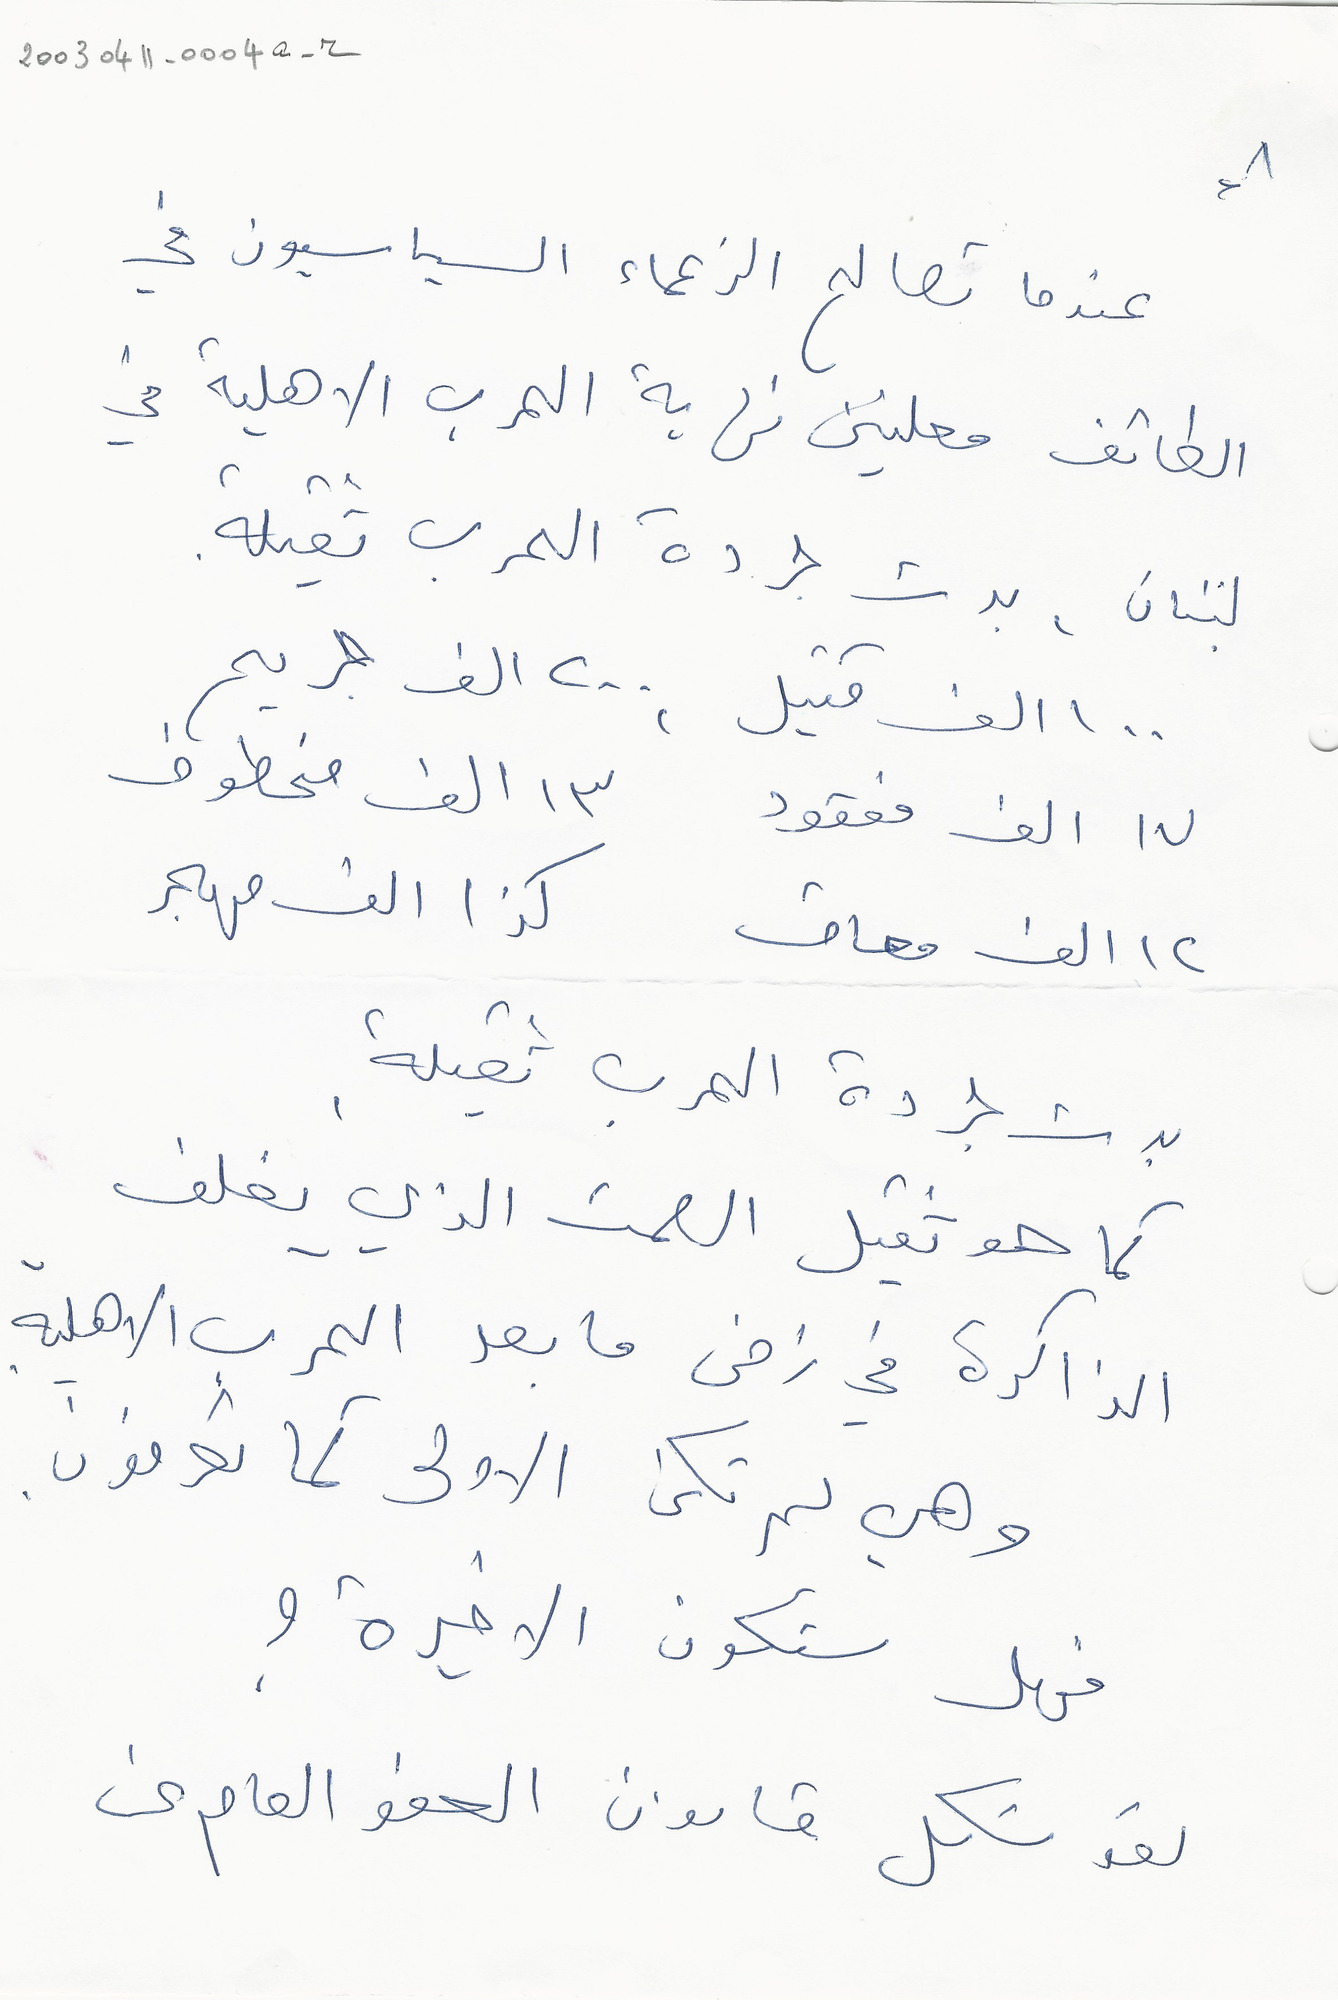 20030411-0004a-r
عندما تصالح الزعماء السياسيون في
الطائف معلنين نهاية الحرب الاهلية في
لبنان، بدت جردة الحرب ثقيلة.
١٠٠ الف قتيل، ٢٠٠ الف جريح
١٧ الف مفقود ١٣ الف مخطوف
١٢ الف معاق كذا الف مهجر
بدت جردة الحرب ثقيلة،
كما هو ثقيل الصمت الذي يغلف
الذاكرة في زمن ما بعد الحرب الاهلية.
وهي لم تكن الاولى كما تعرفون.
فهل ستكون الاخيرة؟
لقد شكل قانون العفو العام عن